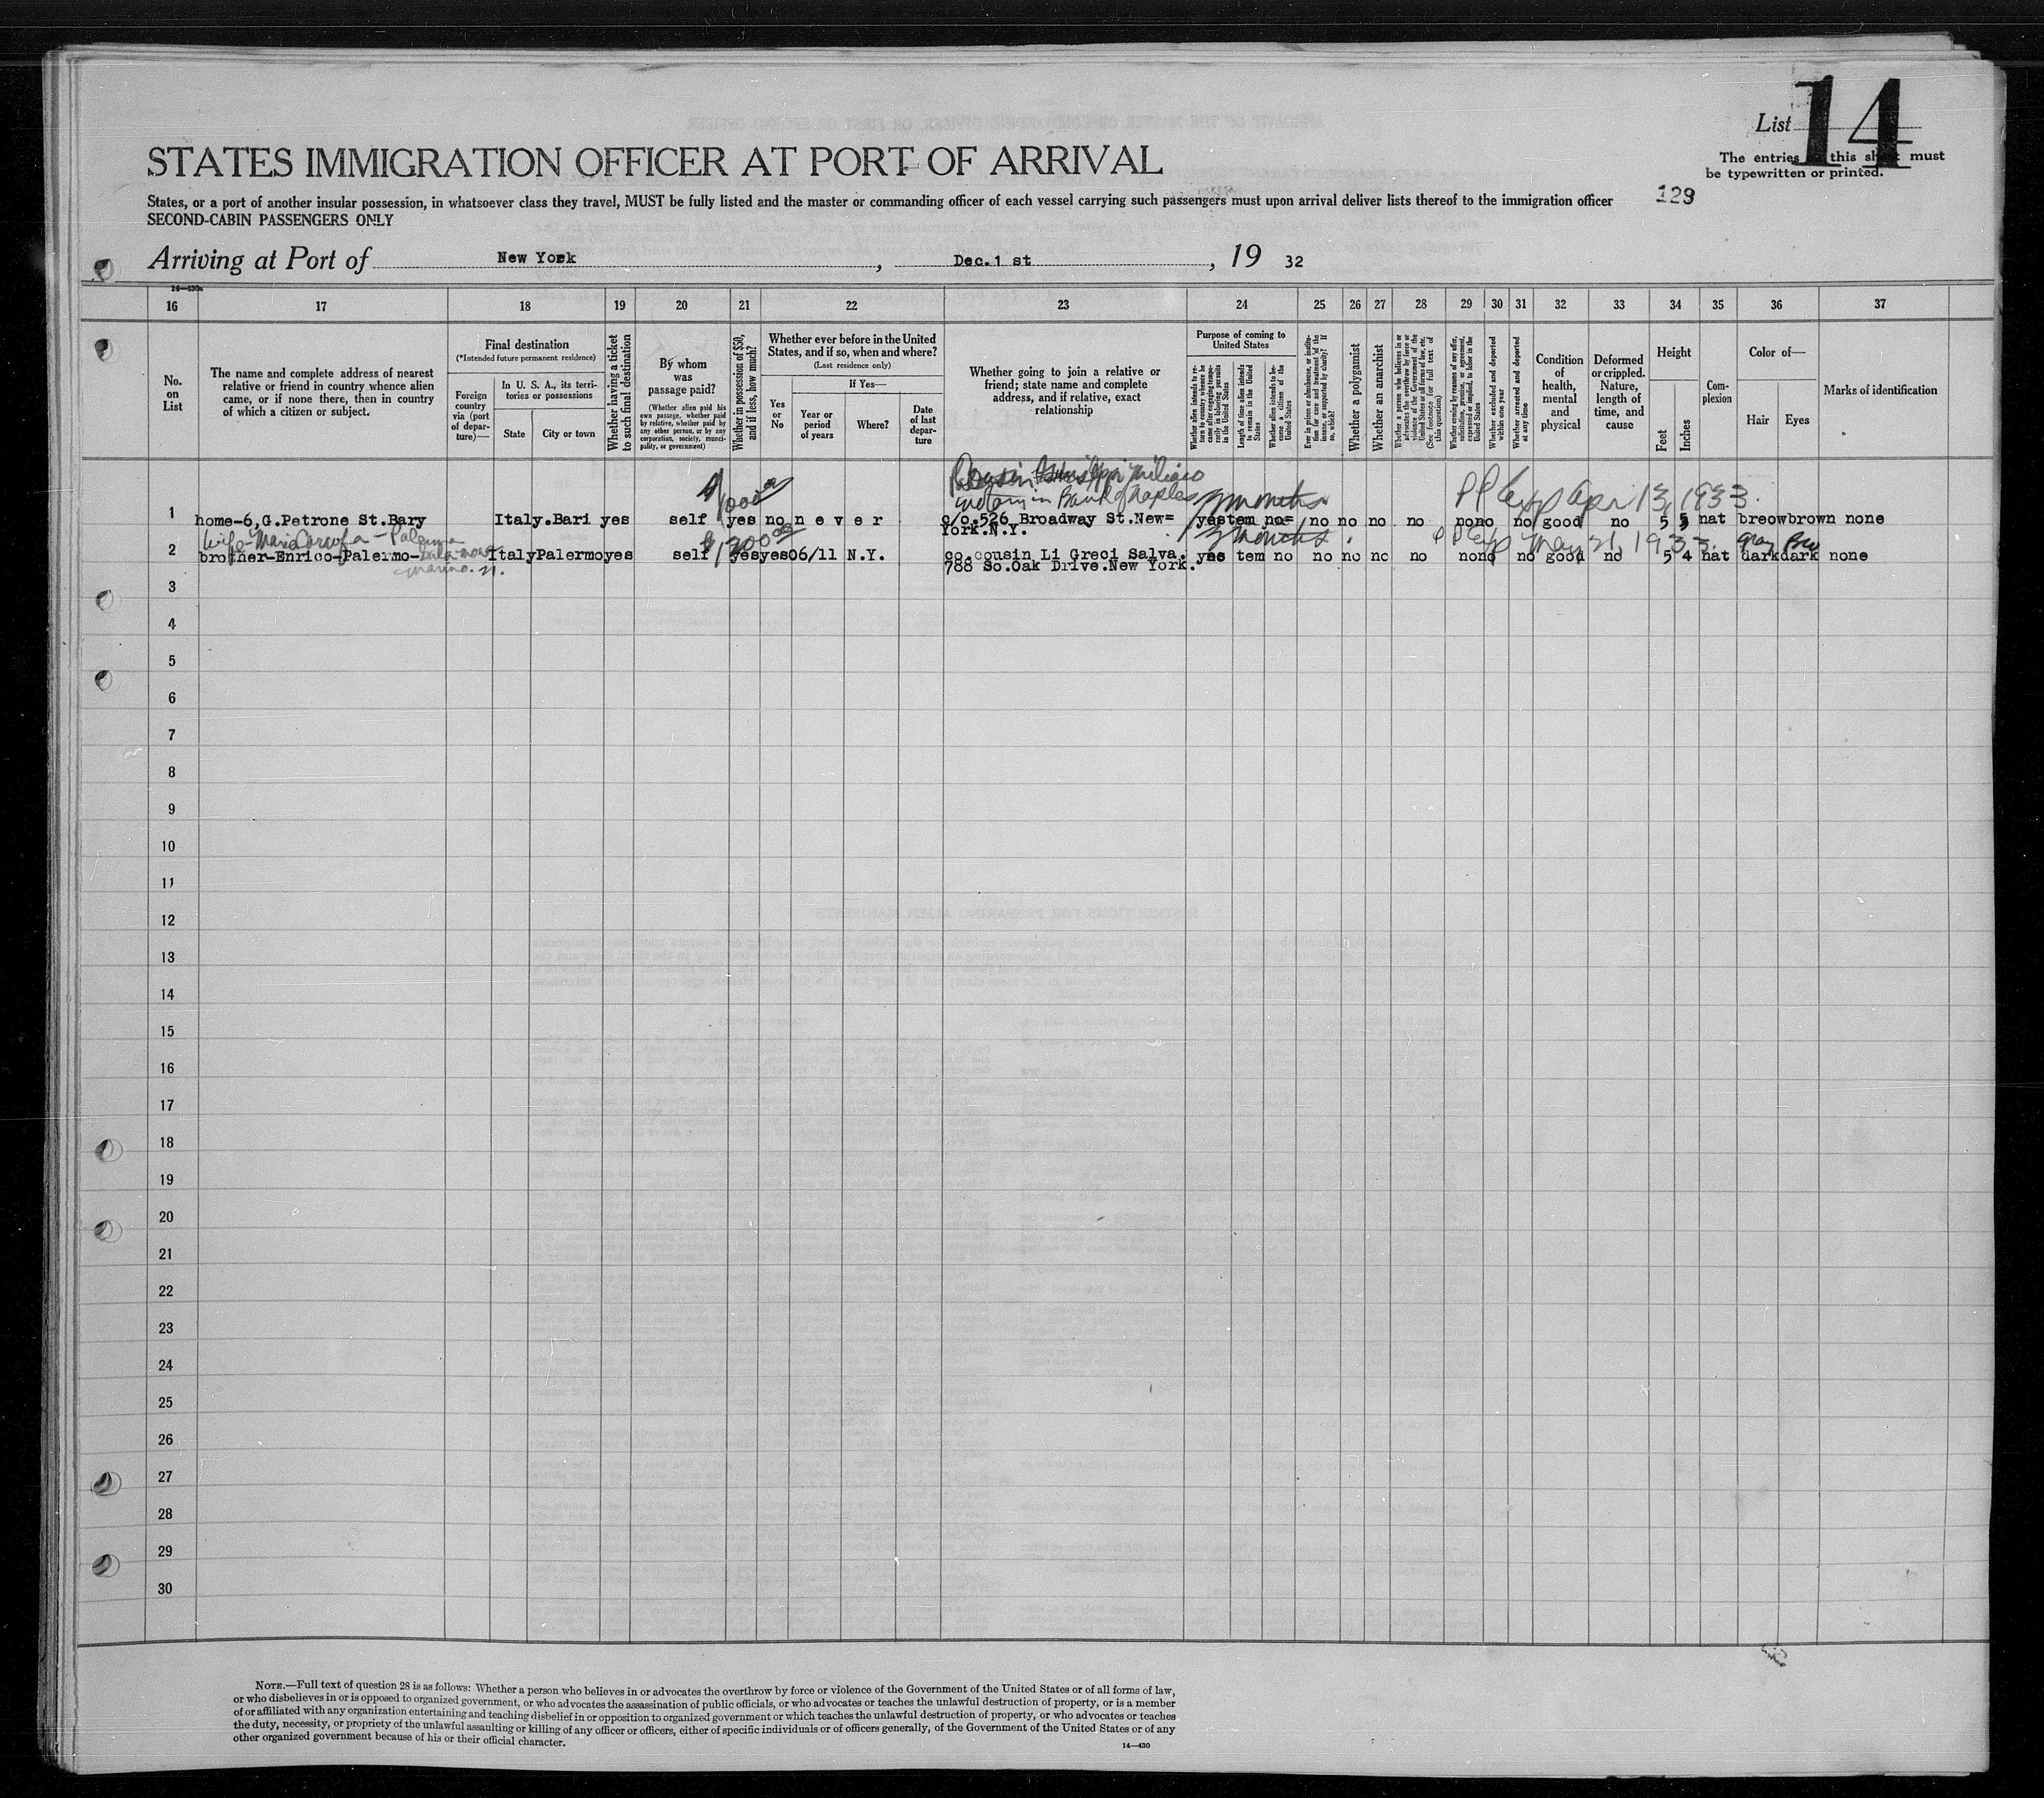 List 14
The entries this sheet must
be typewritten or printed.
129
STATES IMMIGRATION OFFICER AT PORT OF ARRIVAL
States, or a port of another insular possession, in whatsoever class they travel, MUST be fully listed and the master or commanding officer of each vessel carrying such passengers must upon arrival deliver lists thereof to the immigration officer
SECOND-CABIN PASSENGERS ONLY
Arriving at Port of New York , Dec.1 st , 19 32
14—430a
16 17 18 19 20 21 22 23 24 25 26 27 28 29 30 31 32 33 34 35 36 37
No.
on
List
The name and complete address of nearest
relative or friend in country whence alien
came, or if none there, then in country
of which a citizen or subject.
Final destination
(*Intended future permanent residence)
Foreign
country
via (port
of depar-
ture)—
In U. S. A., its terri-
tories or possessions
State
City or town
Whether having a ticket
to such final destination
By whom
was
passage paid?
(Whether alien paid his
own passage, whether paid
by relative, whether paid by
any other person, or by any
corporation, society, munici-
pality, or government)
Whether in possession of $50,
and if less, how much?
Whether ever before in the United
States, and if so, when and where?
(Last residence only)
Yes
or
No
If Yes—
Year or
period
of years
Where?
Date
of last
depar-
ture
Whether going to join a relative or
friend; state name and complete
address, and if relative, exact
relationship
Purpose of coming to
United States
Whether alien intends to re-
turn to country whence he
came after engaging tempo-
rarily in laboring pursuits
in the United States
Length of time alien intends
to remain in the United
States
Whether alien intends to be-
come a citizen of the
United States
Ever in prison or almshouse, or institu-
tion for care and treatment of the
insane, or supported by charity? If
so, which?
Whether a polygamist
Whether an anarchist
Whether a person who believes in or
advocates the overthrow by force or
violence of the Government of the
United States or all forms of law, etc.
(See footnote for full text of
this question)
Whether coming by reasons of any offer,
solicitation, promise, or agreement,
expressed or implied, to labor in the
United States
Whether excluded and deported
within one year
Whether arrested and deported
at any time
Condition
of
health,
mental
and
physical
Deformed
or crippled.
Nature,
length of
time, and
cause
Height
Feet
Inches
Com-
plexion
Color of—
Hair
Eyes
Marks of identification
$1000
in Bank of Naples 3 months PP Exp Apr 13, 1933.
1 home-6,G.Petrone St.Bary Italy.Bari yes self yes no n e v e r c/o.526 Broadway St.New= yes tem no= no no no no no no no good no 5 5 nat breow brown none
York.N.Y.
wife-Maria Palermo $1200 3 months. PP Exp May 21, 1933. gray Bro
2 brother-Enrico-Palermo- Italy Palermo yes self yes yes 06/11 N.Y. co.cousin Li Greci Salva. yes tem no no no no no no no no good no 5 4 nat dark dark none
788 So.Oak Drive.New York.
3
4
5
6
7
8
9
10
11
12
13
14
15
16
17
18
19
20
21
22
23
24
25
26
27
28
29
30
NOTE.—Full text of question 28 is as follows: Whether a person who believes in or advocates the overthrow by force or violence of the Government of the United States or of all forms of law,
or who disbelieves in or is opposed to organized government, or who advocates the assassination of public officials, or who advocates or teaches the unlawful destruction of property, or is a member
of or affiliated with any organization entertaining and teaching disbelief in or opposition to organized government or which teaches the unlawful destruction of property, or who advocates or teaches
the duty, necessity, or propriety of the unlawful assaulting or killing of any officer or officers, either of specific individuals or of officers generally, of the Government of the United States or of any
other organized government because of his or their official character.
14—430